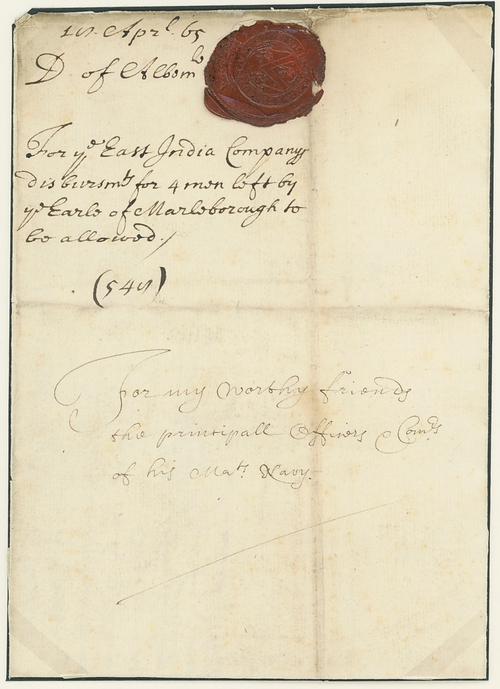 Aprˡ. 65
D of Albemˡᵉ
For yᵉ East India Companys
disbursmᵗˢ for 4 men left by
yᵉ Earle of Marleborough to
be allowed./
For my worthy friends
the principall Officers & Comʳˢ
of his Maᵗˢ Navy.